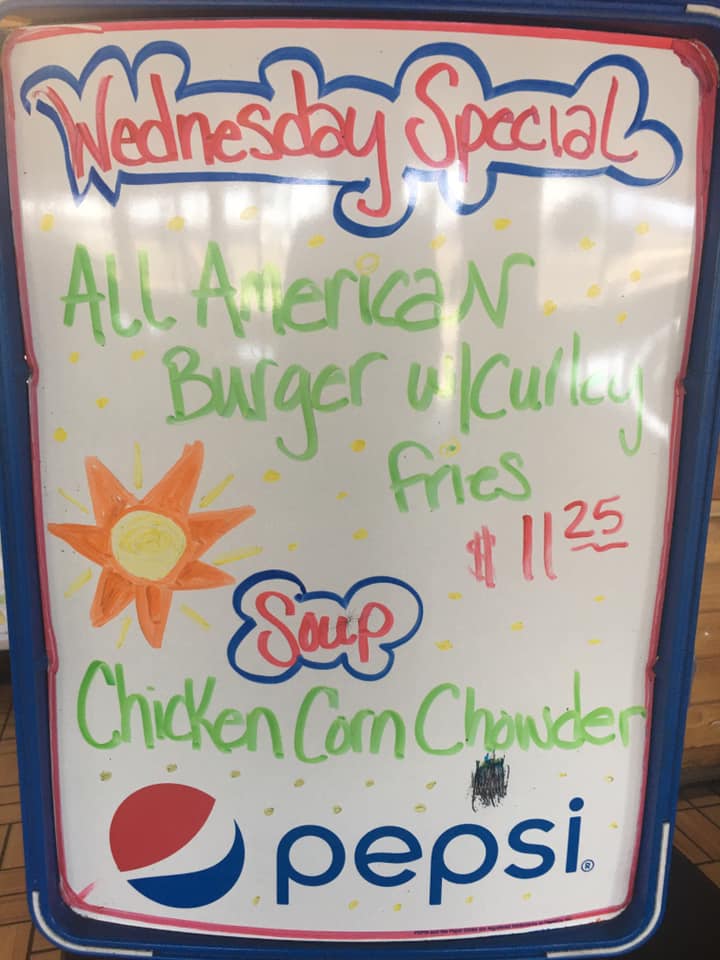 Wednesday Special
All American
Burger w/Curley
fries
$11.25
Soup
Chicken Corn Chowder
pepsi®